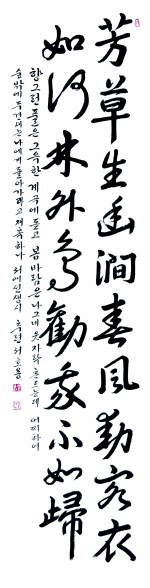 芳草生幽澗春風動客衣
如何林外鳥勸我不如歸
향그런 풀은 그윽한 계곡에 돋고 봄바람은 나그네 옷자락 흔드는데 어찌하여
숲밖에 두견새는 나에게 돌아가라고 재촉하나